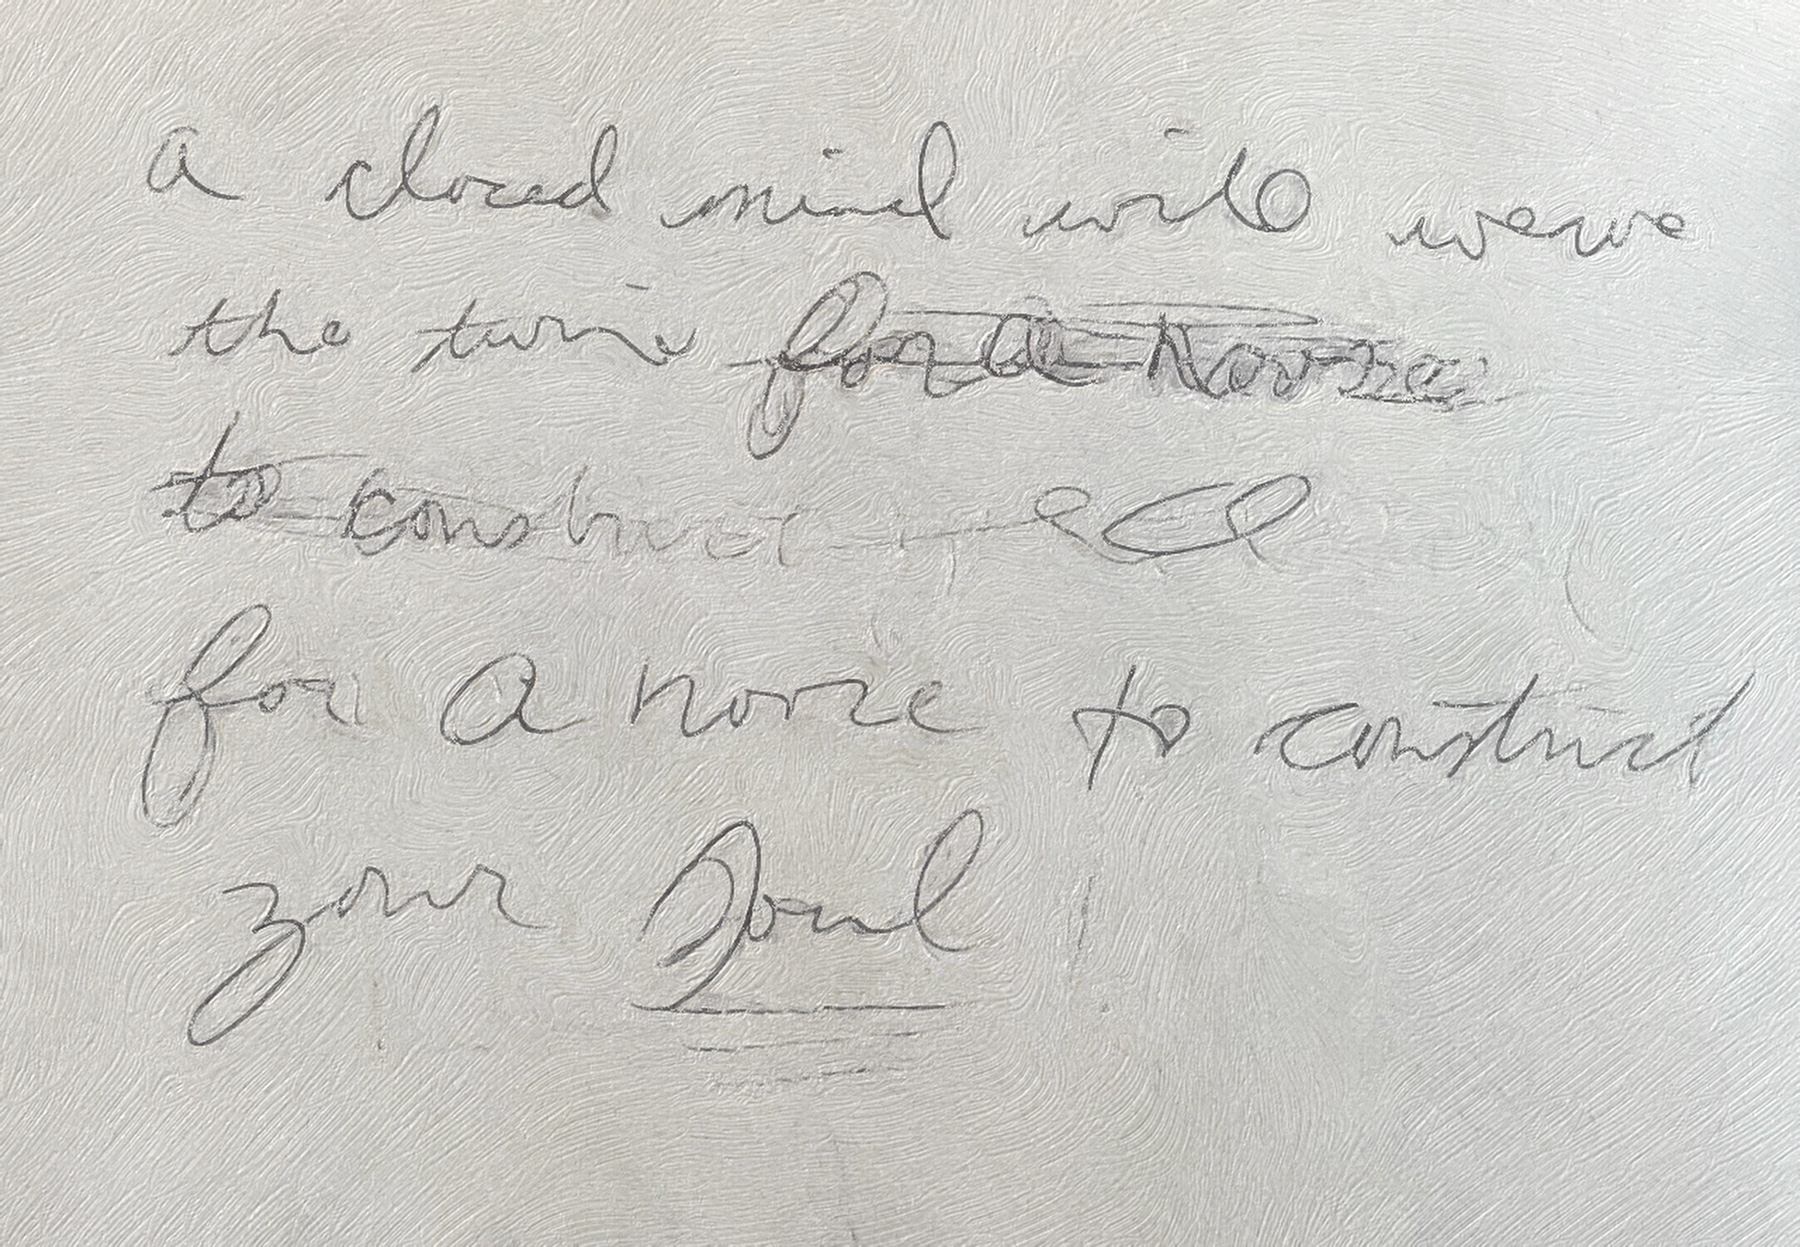 a closed mind will weave
the twine for a noose
to construct
for a noose to construct
your Soul